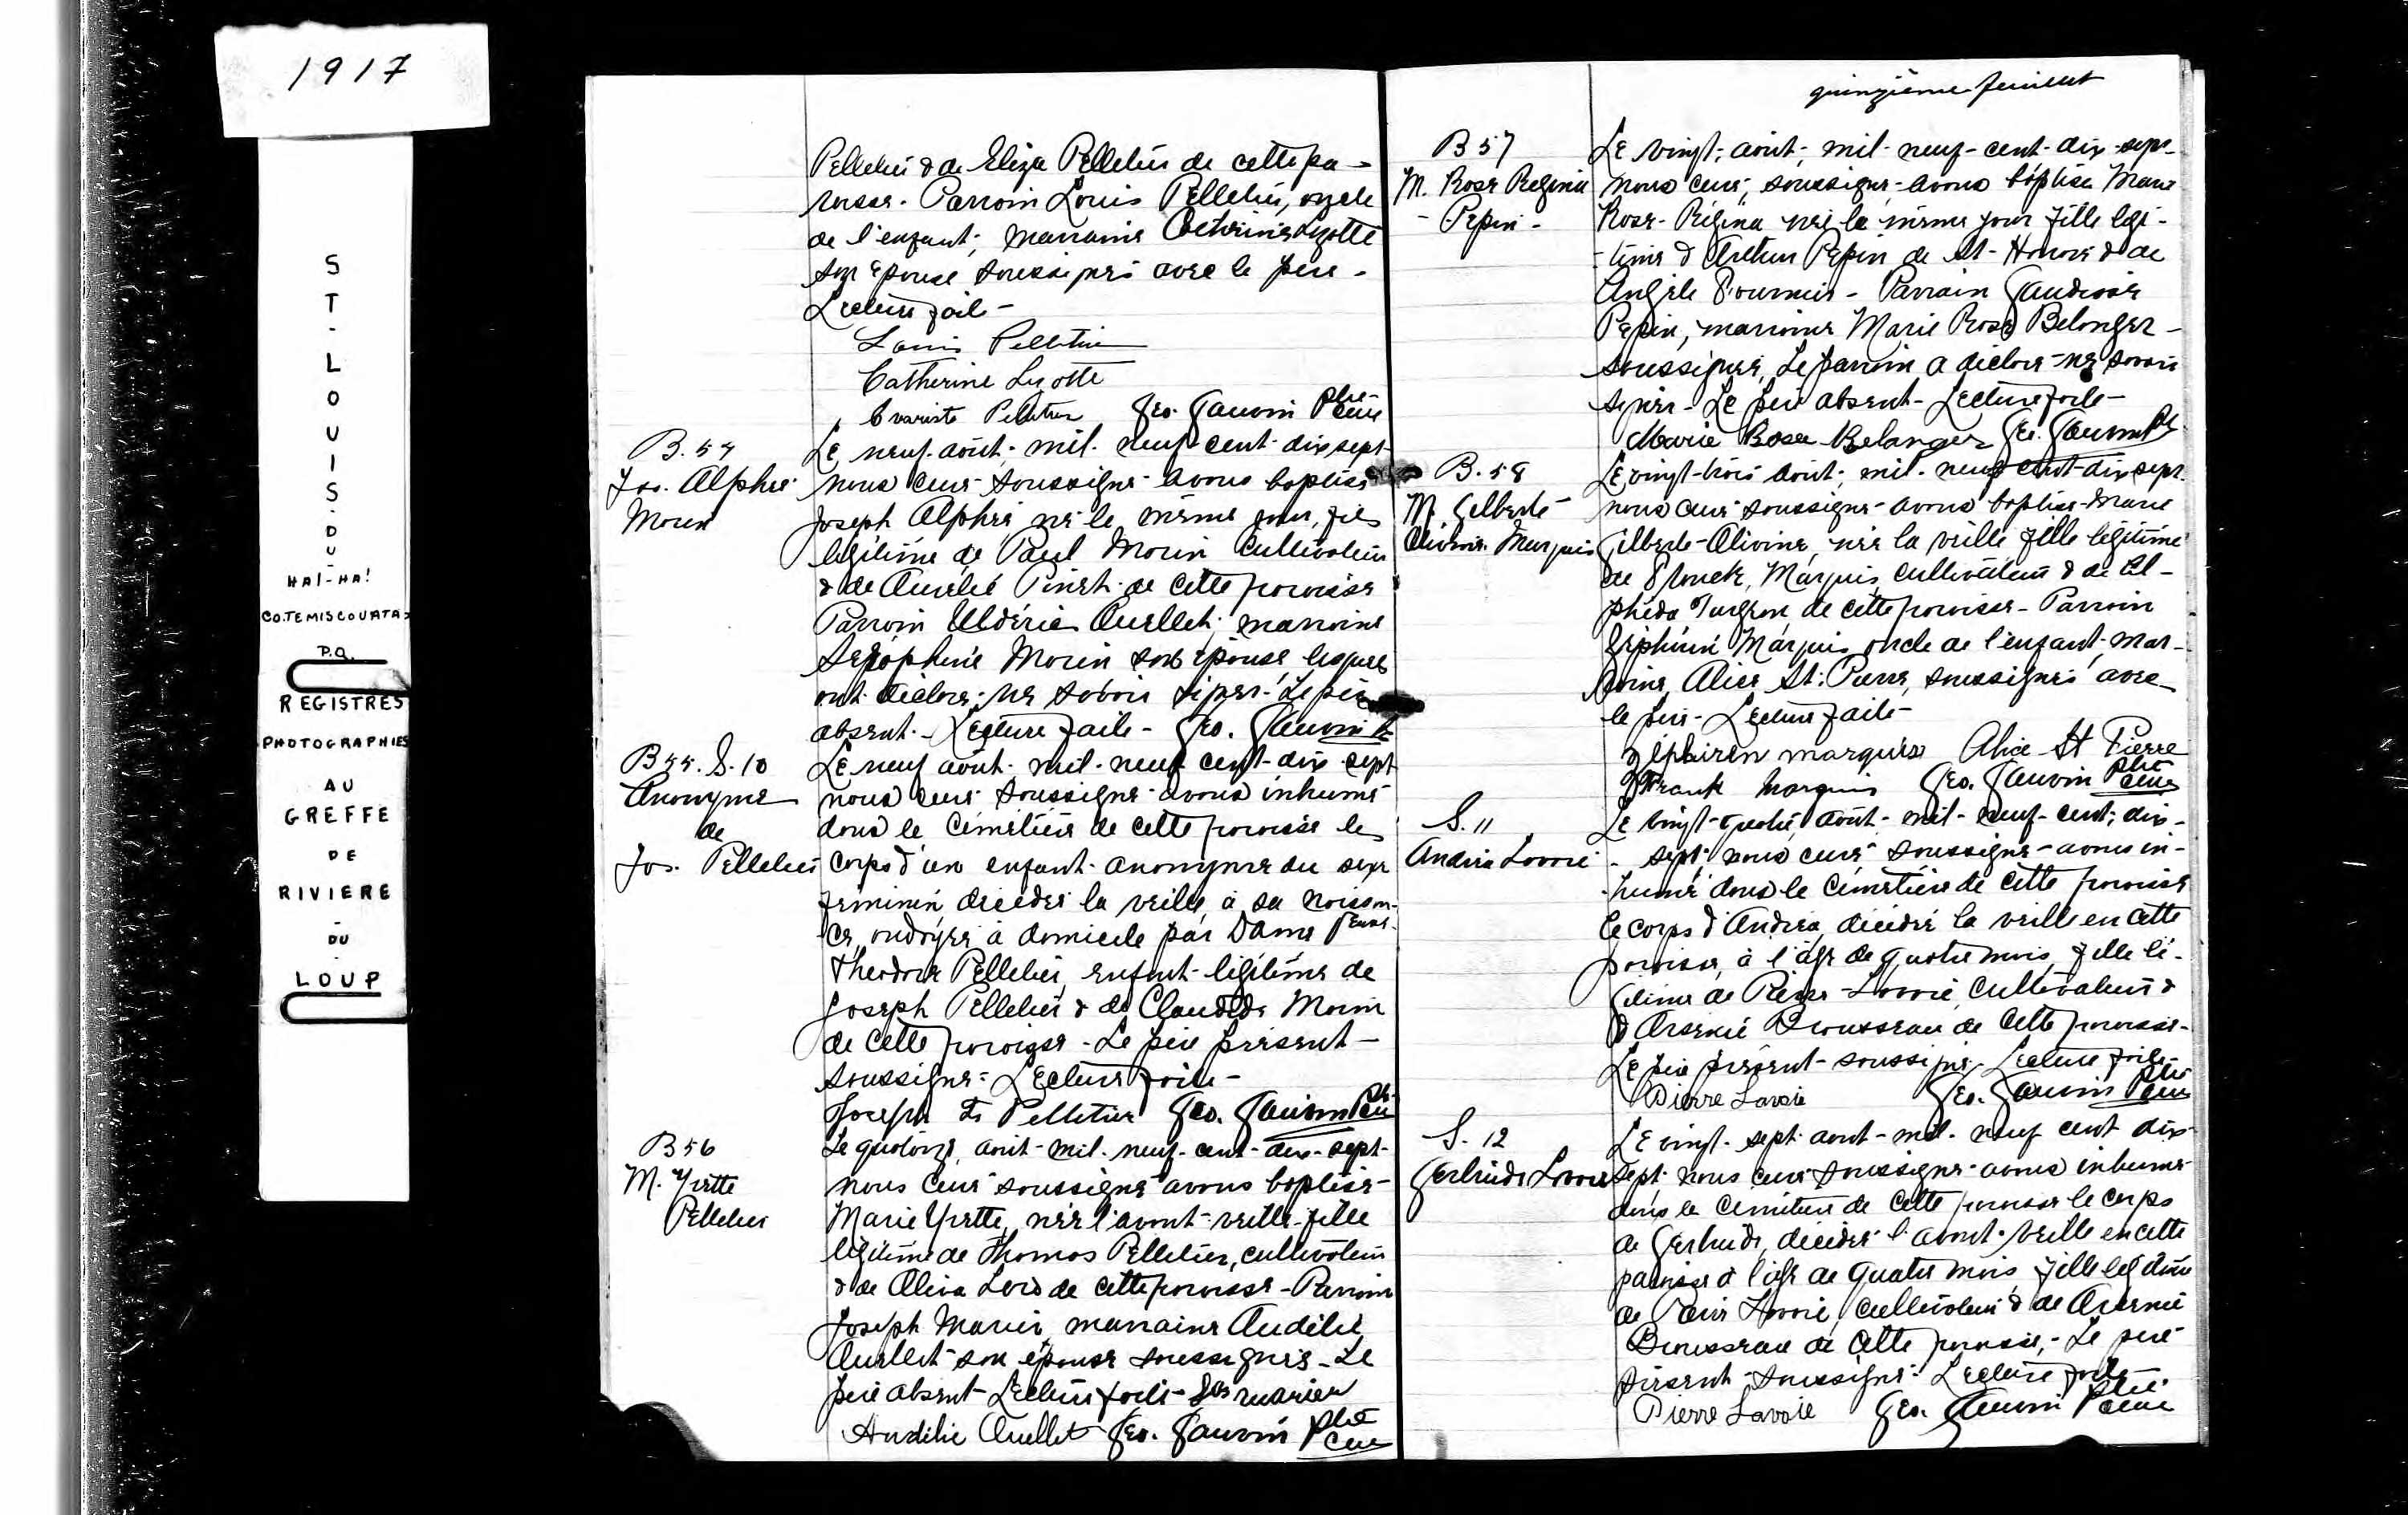 1917
ST-LOUIS-DU-
HA!-HA!
CO.TEMISCOUATA
P.Q.
REGISTRES
PHOTOGRAPHIES
AU
GREFFE
DE
RIVIERE
-
DU
-
LOUP
Pelletier & de Eliza Pelletier de cette pa-
roisse. Parrain Louis Pelletier, oncle
de l'enfant; marraine Catherine Lizotte
son épouse soussignés avec le père -
Lecture faite -
Louis Pelletier
Catherine Lizotte
Evariste Pelletier Geo. Gauvin Ptre Curé
B. 54
Jos. Alphée
Morin
Le neuf août mil neuf cent dix sept
nous curé soussigné avons baptisé
Joseph Alphée né le même jour, fils
légitime de Paul Morin cultivateur
& de Aurélie Pinet de cette paroisse
Parrain Uldéric Ouellet; marraine
Séraphine Morin son épouse lesquels
ont déclaré ne savoir signer. Le père
absent. - Lecture faite - Geo. Gauvin
B 55. S. 10
Anonyme
de
Jos. Pelletier
Le neuf août mil neuf cent dix sept
nous curé soussigné avons inhumé
dans le cimetière de cette paroisse le
corps d'un enfant anonyme du sexe
féminin décédée la veille à sa naissan-
ce, ondoyée à domicile par Dame
Théodore Pelletier, enfant légitime de
Joseph Pelletier & de Claudia Morin
de cette paroisse - Le père présent -
soussigné - Lecture faite -
Joseph Pelletier Geo. Gauvin Ptre Curé
B 56
M. Yvette
Pelletier
Le quatorze août mil neuf cent dix-sept
nous curé soussigné avons baptisé
Marie Yvette, née l'avant-veille fille
légitime de Thomas Pelletier, cultivateur
& de Oliva Lord de cette paroisse - Parrain
Joseph Marier, marraine Audélie
Ouellet son épouse soussignés - Le
père absent - Lecture faite - Jos marier
Audélie Ouellet Geo. Gauvin Ptre Curé
quinzième feuillet
B 57
M. Rose Regina
- Pepin -
Le vingt août mil neuf cent dix-sept
nous curé soussigné avons baptisé Marie
Rose Régina née le même jour fille légi-
-time d'Arthur Pepin de St-Honoré & de
Angèle Fournier - Parrain Gaudiose
Pepin, marraine Marie Rose Belanger -
soussignée, Le parrain a déclaré ne savoir
signer - Le père absent - Lecture faite -
Marie Rose Belanger Geo. Gauvin Ptre
B. 58
M. Gilberte
Olivine Marquis
Le vingt-trois août mil neuf cent dix sept
nous curé soussigné avons baptisé Marie
Gilberte-Olivine, née la veille fille légitime
de Franck Marquis, cultivateur & de Al-
phéda Turgeon de cette paroisse - Parrain
Zéphirin Marquis oncle de l'enfant mar-
raine Alice St-Pierre, soussignés avec
le père - Lecture faite -
Zéphirin marquis Alice St Pierre
Frank Marquis Geo. Gauvin Ptre Curé
S. 11
Andréa Lavoie
Le vingt-quatre août mil neuf cent dix-
sept nous curé soussigné avons in-
humé dans le cimetière de cette paroisse
le corps d'Andréa, décédée la veille en cette
paroisse, à l'âge de quatre mois, fille lé-
gitime de Pierre Lavoie, cultivateur &
d'Arsenie Brousseau de cette paroisse -
Le père présent - soussigné Lecture faite
Pierre Lavoie Geo. Gauvin Ptre Curé
S. 12
Gertrude Lavoie
Le vingt-sept août mil neuf cent dix
sept nous curé soussigné avons inhumé
dans le cimetière de cette paroisse le corps
de Gertrude, décédée l'avant-veille en cette
paroisse à l'âge de quatre mois, fille légitime
de Pierre Lavoie, cultivateur & de Arsenie
Brousseau de cette paroisse, - Le père
présent - soussigné - Lecture faite -
Pierre Lavoie Geo. Gauvin Ptre Curé